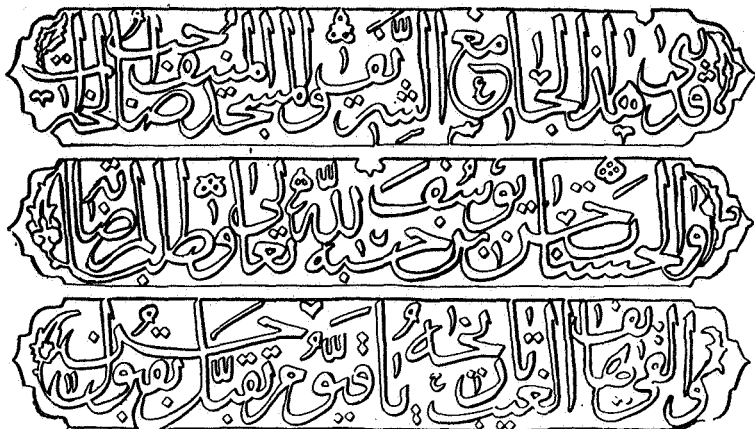 قد بنى هذا الجامع الشريف ومسجد المنيف صاحب الخيرات
والحسنات حسن بن يوسف حسبة لله تعالى وطلبا لمرضاته
والقى هاتف الغيب تاريخه يا قيوم تقبل بقبول حسن